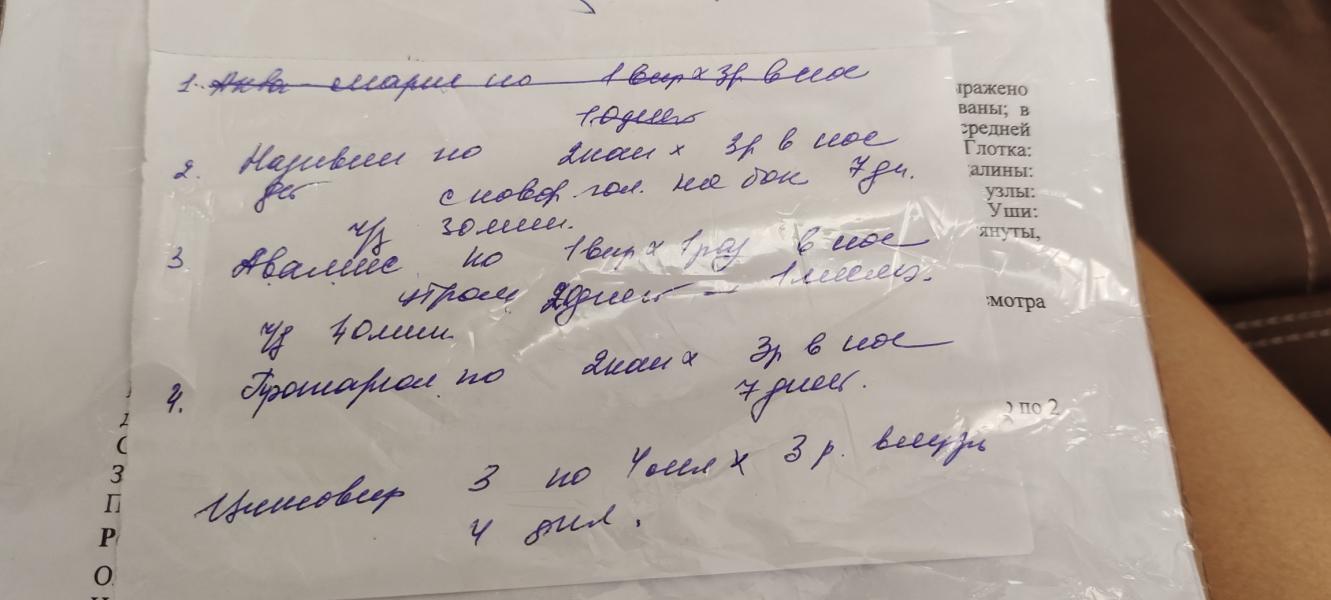 1. Аква марис по 1 впр х 3р в нос
10 дней
2. Називин по 2 кап х 3р в нос
дет с повор. гол. на бок 7 дн.
ч/з 30 мин.
3 Авамис по 1 впр х 1 раз в нос
утром 20 дней — 1 месяц.
ч/з 40 мин
4. Протаргол по 2 кап х 3р в нос
7 дней.
Цитовир 3 по 4 мл х 3 р. внутрь
4 дня.
ыражено
ваны; в
средней
Глотка:
алины:
узлы:
Уши:
януты,
смотра
по 2
С
З
П
Р
О